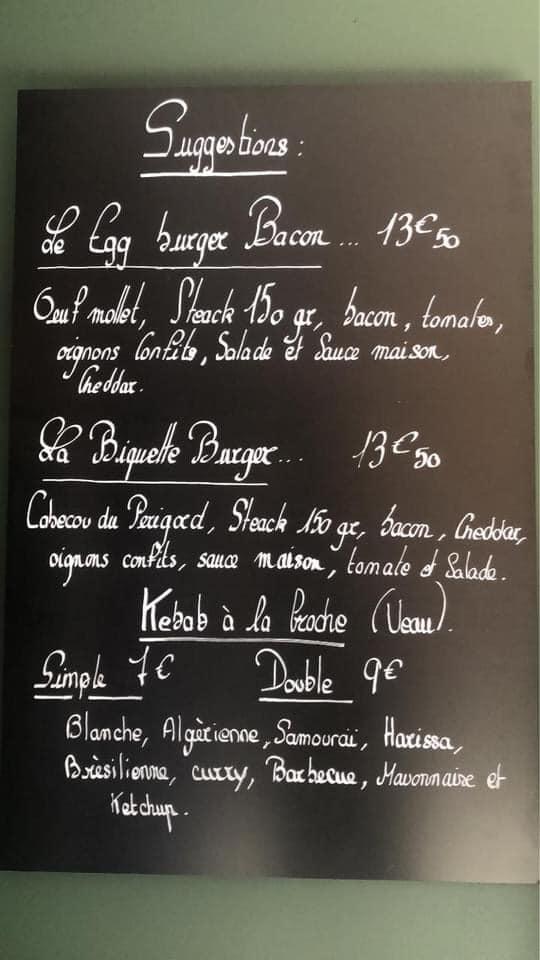 Suggestions :
Le Egg burger Bacon ... 13€50
Oeuf mollet, Steack 150 gr, bacon, tomates,
oignons Confits, Salade et Sauce maison,
Cheddar.
La Biquette Burger ... 13€50
Cabecou du Périgord, Steack 150 gr, bacon, Cheddar,
oignons confits, sauce maison, tomate et Salade.
Kebab à la broche (Veau).
Simple 7€ Double 9€
Blanche, Algèrienne, Samouraï, Harissa,
Brèsilienne, curry, Barbecue, Mayonnaise et
Ketchup.